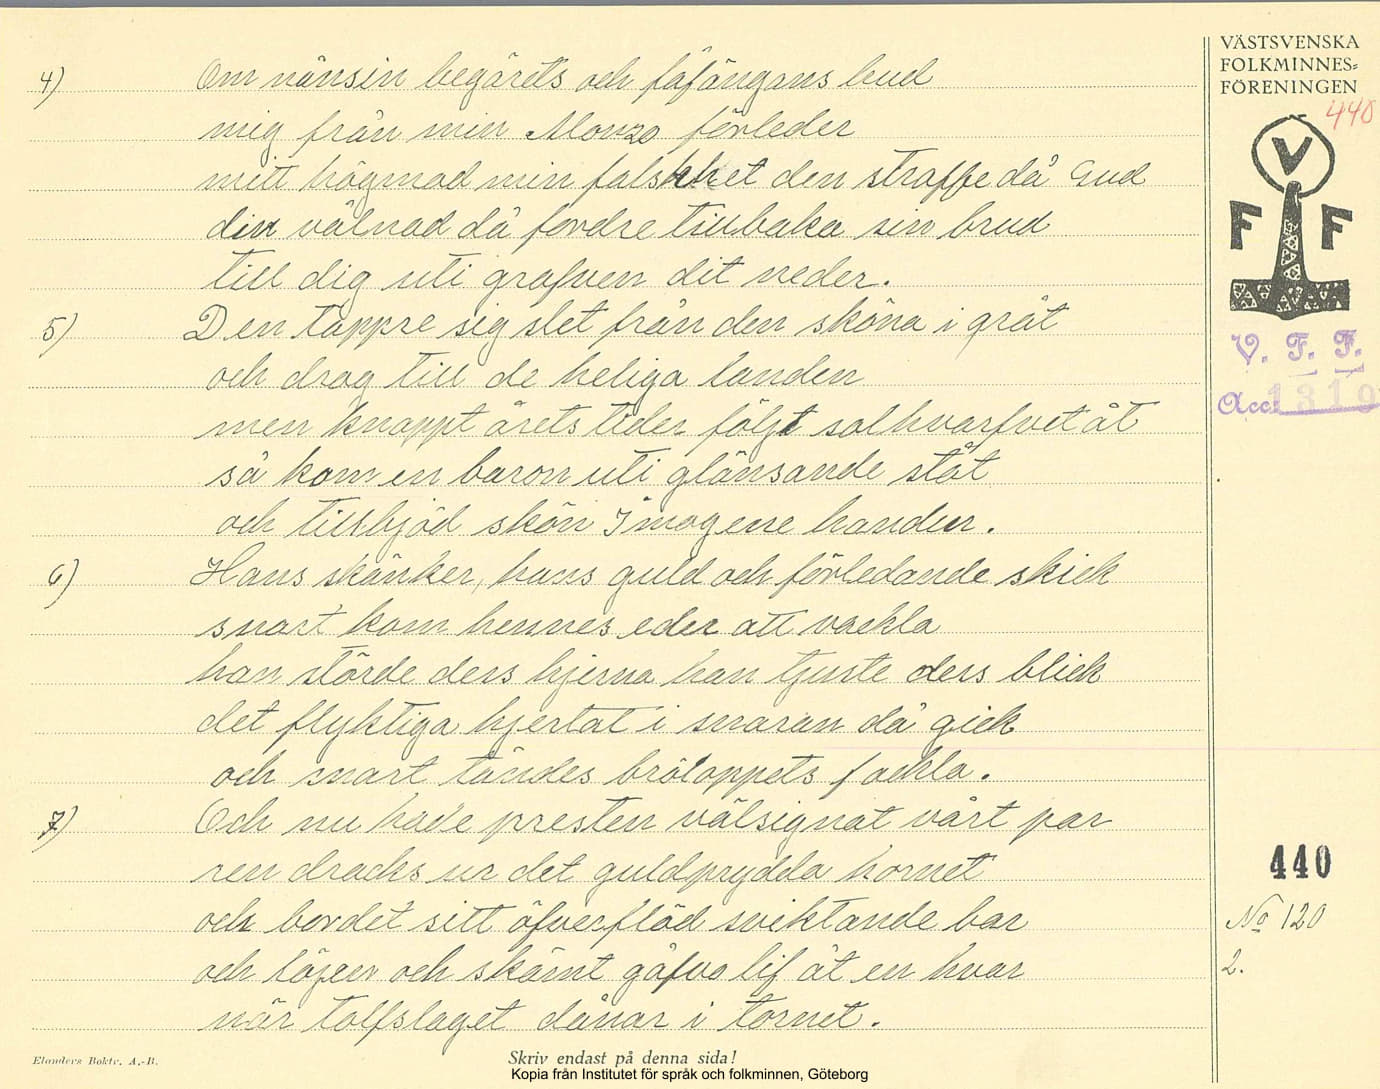 VÄSTSVENSKA
FOLKMINNES-
FÖRENINGEN
440
V
F F
V. F. F.
Acc. 1319
4) Om nånsin begärets och fåfängans bud
mig från min Alonzo förleder
mitt högmod min falskhet den straffe då Gud
din vålnad då fordre tillbaka sin brud
till dig uti grafven dit neder.
5) Den tappre sig slet från den sköna i gråt
och drog till de heliga landen
men knappt årets tider följt solhvarfvet åt
så kom en baron uti glänsande ståt
och tillbjöd skön Imogene handen.
6) Hans skänker, hans guld och förledande skick
snart kom hennes eder att vackla
han störde dess hjerna han tjuste dess blick
det flyktiga hjertat i snaran då gick
och snart tändes bröloppets fackla.
7) Och nu hade presten välsignat vårt par
ren dracks ur det guldprydda hornet
och bordet sitt öfverflöd sviktande bar
och löjen och skämt gåfvo lif åt en hvar
när tolfslaget dånar i tornet.
440
No 120
2.
Elanders Boktr. A.-B.
Skriv endast på denna sida!
Kopia från Institutet för språk och folkminnen, Göteborg